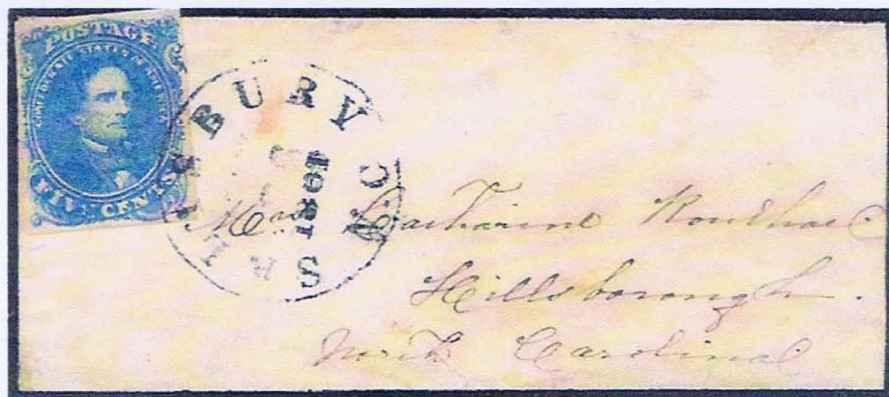 POSTAGE
CONFEDERATE STATES OF AMERICA
FIVE CENTS
SALISBURY N.C.
Mrs Catharine Roulhac
Hillsborough.
North Carolina